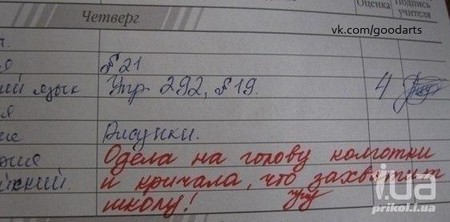 Оценка Подпись учителя
Четверг
vk.com/goodarts
§ 21
ий язык Упр. 292, § 19. 4
Рисунки.
Одела на голову колготки
и кричала, что захватит
школу!
i.ua
prikol.i.ua